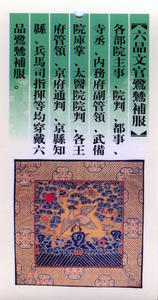 【六品文官鷺鷥補服】
各部院主事、院判、都事、
寺丞、內務府副管領、武備
院庫掌、太醫院院判、各王
府管領、京府通判、京縣知
縣、兵馬司指揮等均穿戴六
品鷺鷥補服。